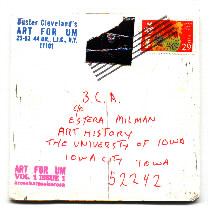 Buster Cleveland's
ART FOR UM
23-63 44 DR., L.I.C., N.Y.
11101
29
B.C.A.
c/o
ESTERA MILMAN
ART HISTORY
THE UNIVERSITY OF IOWA
IOWA CITY IOWA
52242
ART FOR UM
VOL 1 ISSUE 1